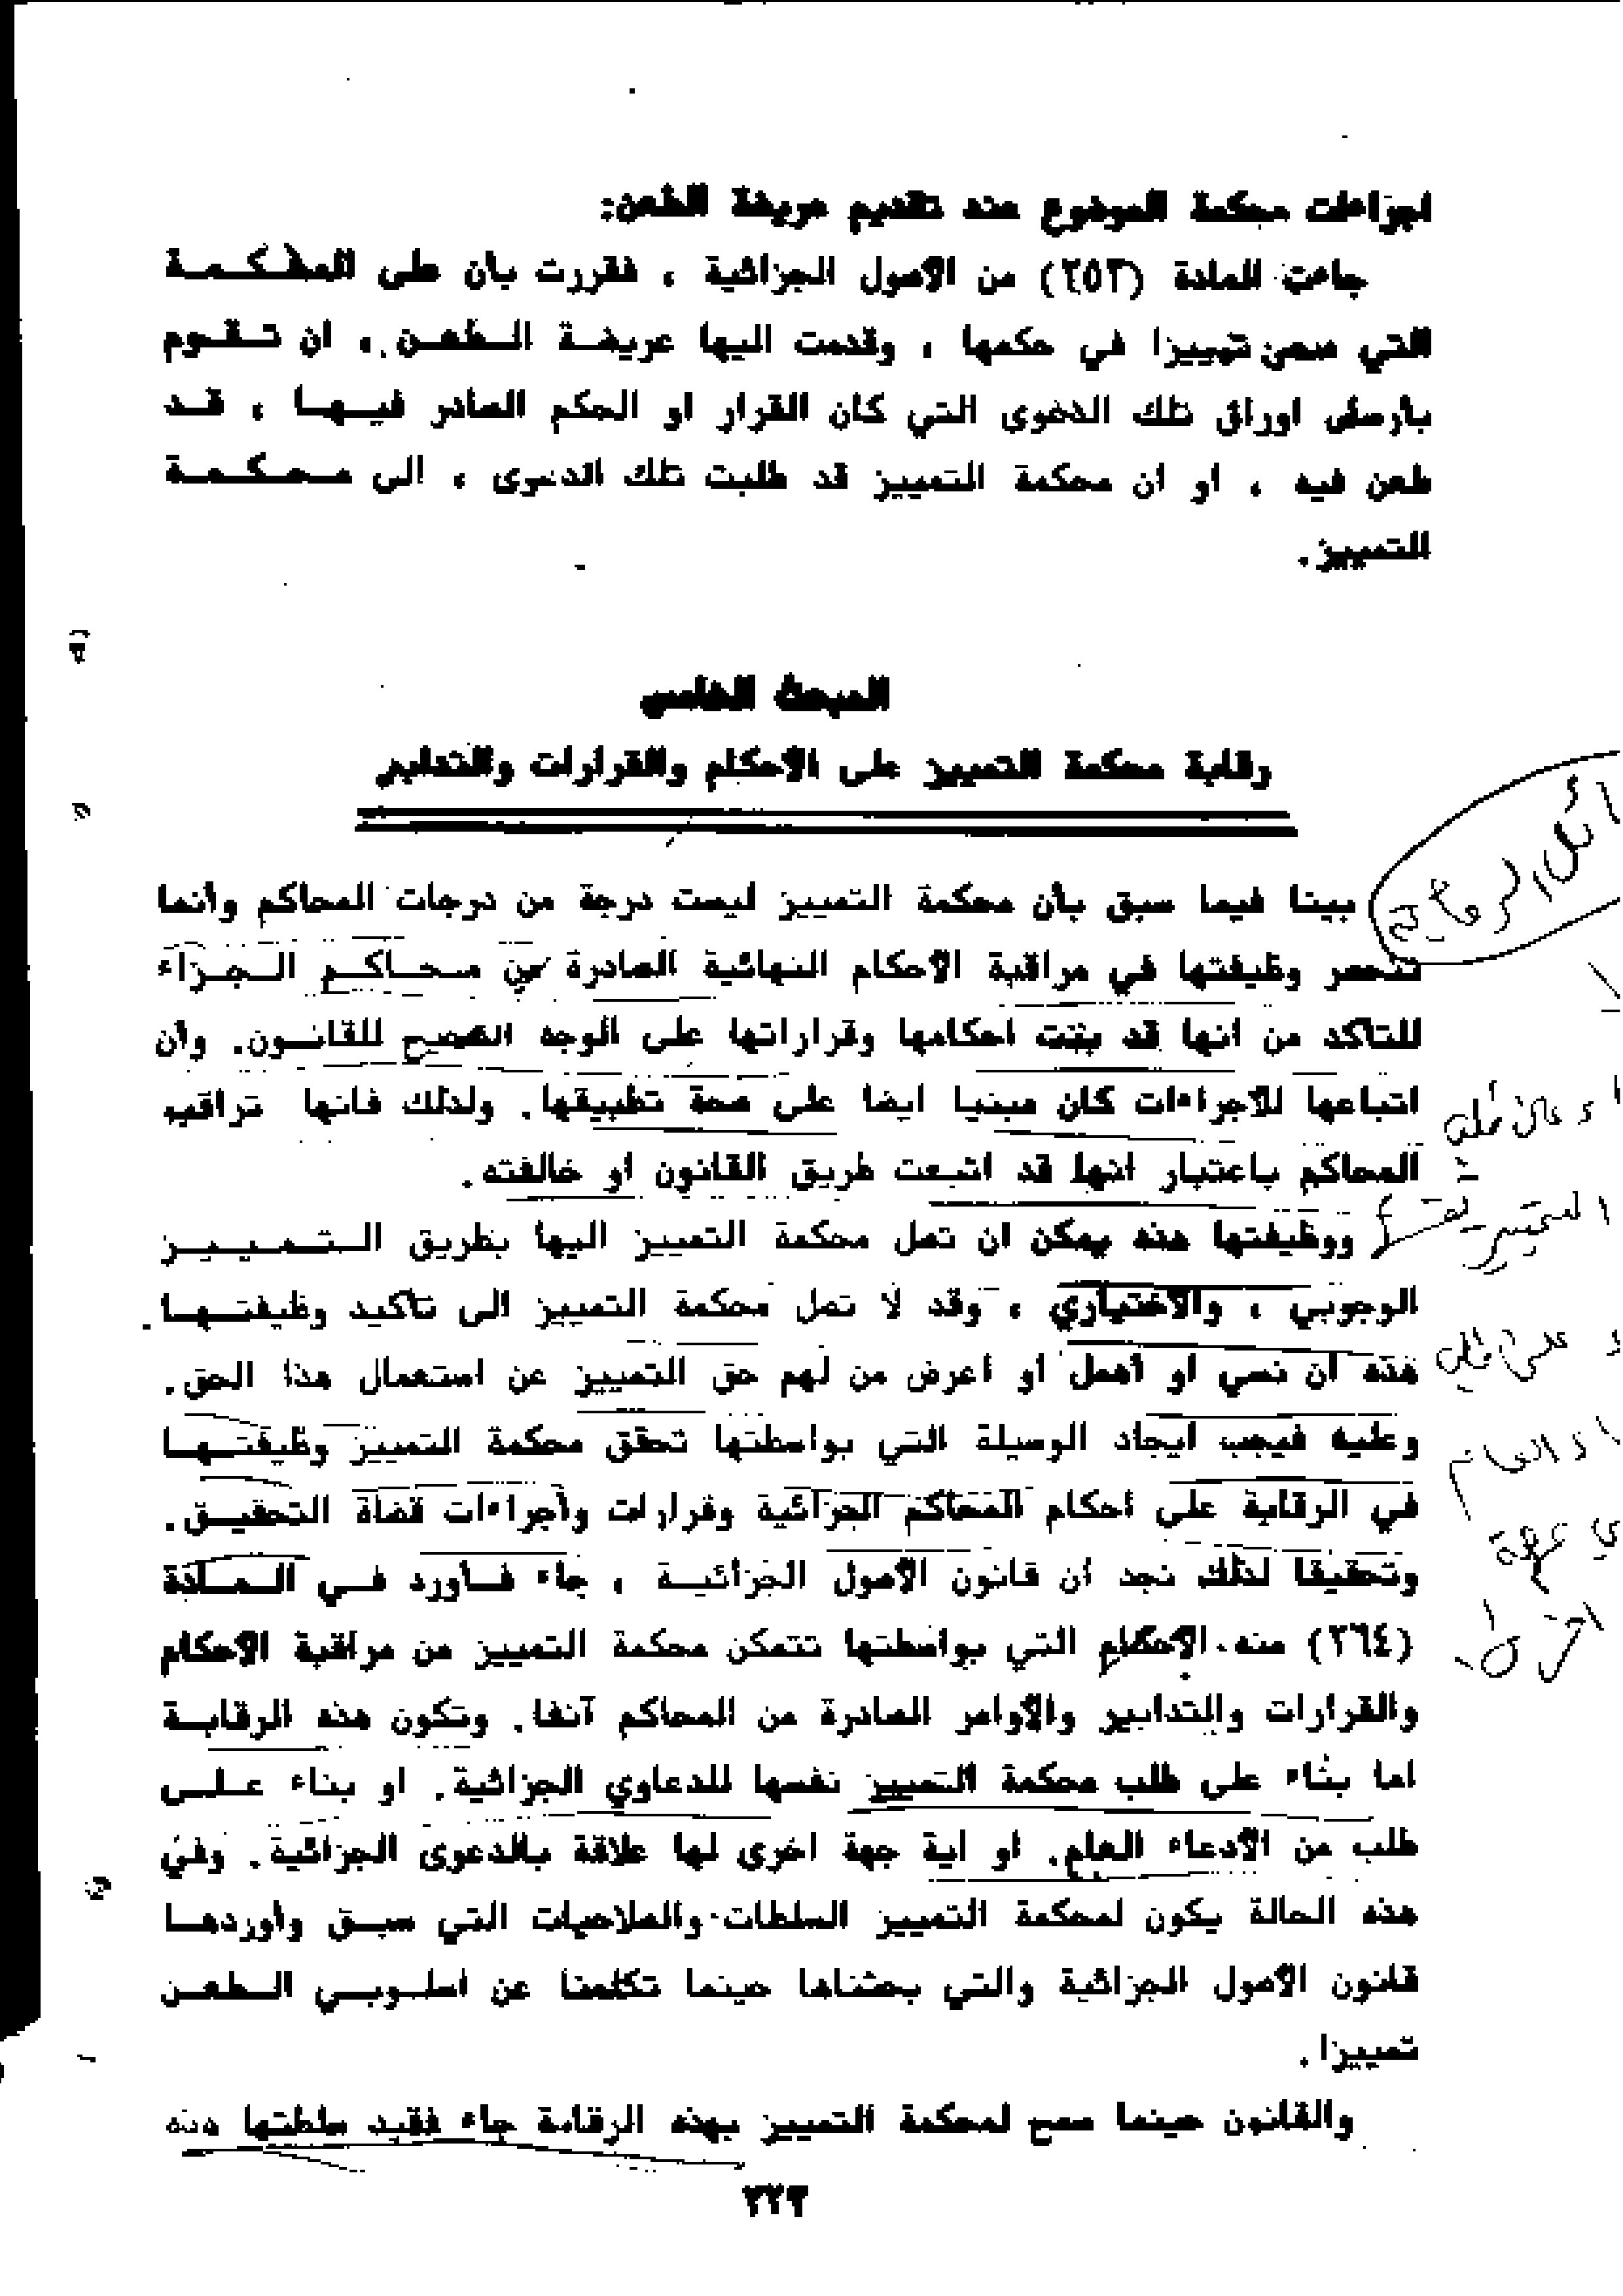 اجراءات محكمة الموضوع عند تقديم عريضة الطعن:
جاءت المادة (٢٥٣) من الاصول الجزائية ، فقررت بان على المحكمة
التي طعن تمييزا في حكمها ، وقدمت اليها عريضة الطعن ، ان تقوم
بأرسال اوراق تلك الدعوى التي كان القرار او الحكم الصادر فيها ، قد
طعن فيه ، او ان محكمة التمييز قد طلبت تلك الدعوى ، الى محكمة
التمييز.
المبحث الخامس
رقابة محكمة التمييز على الاحكام والقرارات والتدابير
بينا فيما سبق بأن محكمة التمييز ليست درجة من درجات المحاكم وأنما
تنحصر وظيفتها في مراقبة الاحكام النهائية الصادرة من محاكم الجزاء
للتأكد من انها قد بنت احكامها وقراراتها على الوجه الصحيح للقانون. وأن
اتباعها للاجراءات كان مبنيا ايضا على صحة تطبيقها. ولذلك فانها تراقب
المحاكم باعتبار انها قد اتبعت طريق القانون او خالفته.
ووظيفتها هذه يمكن ان تصل محكمة التمييز اليها بطريق التمييز
الوجوبي ، والاختياري ، وقد لا تصل محكمة التمييز الى تأكيد وظيفتها
هذه ان نسي او أهمل او أعرض من لهم حق التمييز عن استعمال هذا الحق.
وعليه فيجب ايجاد الوسيلة التي بواسطتها تحقق محكمة التمييز وظيفتها
في الرقابة على احكام المحاكم الجزائية وقرارات وأجراءات قضاة التحقيق.
وتحقيقا لذلك نجد ان قانون الأصول الجزائية ، جاء فأورد في المادة
(٢٦٤) منه الاحكام التي بواسطتها تتمكن محكمة التمييز من مراقبة الاحكام
والقرارات والتدابير والاوامر الصادرة من المحاكم آنفا. وتكون هذه الرقابة
اما بناء على طلب محكمة التمييز نفسها للدعاوي الجزائية. او بناء على
طلب من الأدعاء العام. او اية جهة اخرى لها علاقة بالدعوى الجزائية. وفي
هذه الحالة يكون لمحكمة التمييز السلطات والصلاحيات التي سبق وأوردها
قانون الأصول الجزائية والتي بحثناها حينما تكلمنا عن اسلوبي الطعن
تمييزا.
والقانون حينما سمح لمحكمة التمييز بهذه الرقابة جاء فقيد سلطتها هذه
٢٢٣